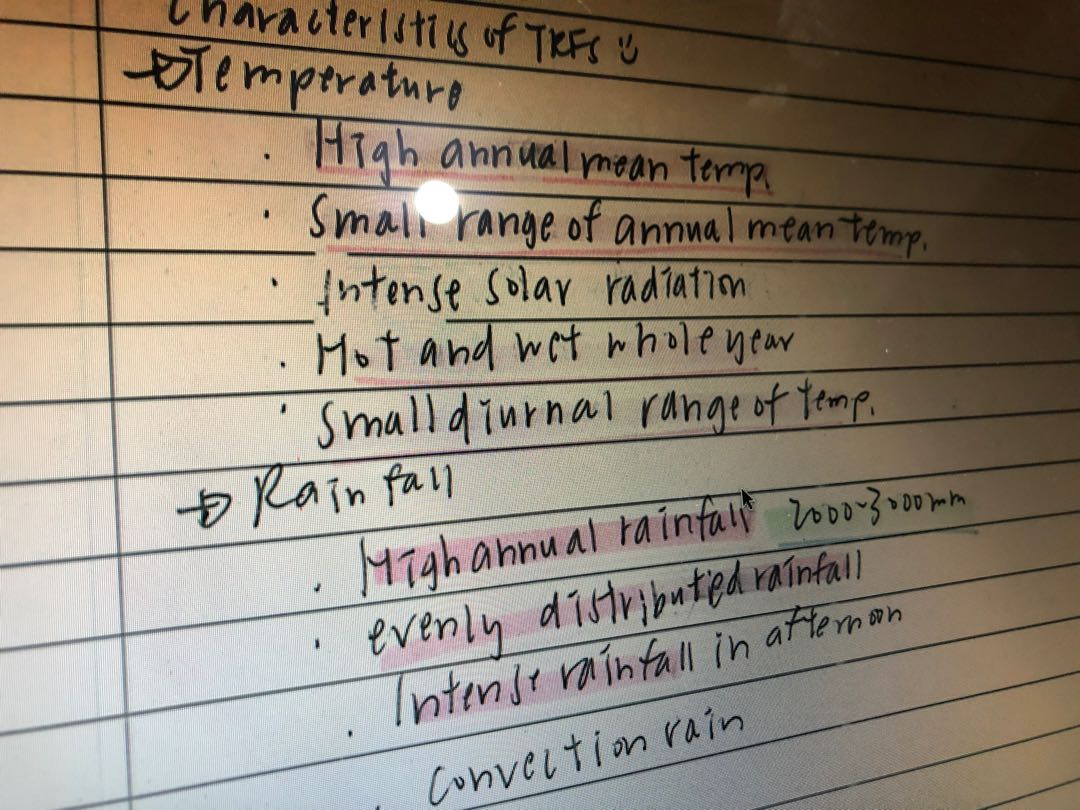 Characteristics of TRFs
Temperature
High annual mean temp.
Small range of annual mean temp.
Intense solar radiation
Hot and wet whole year
Small diurnal range of temp.
Rainfall
High annual rainfall 2000-3000mm
evenly distributed rainfall
Intense rainfall in afternoon
convection rain